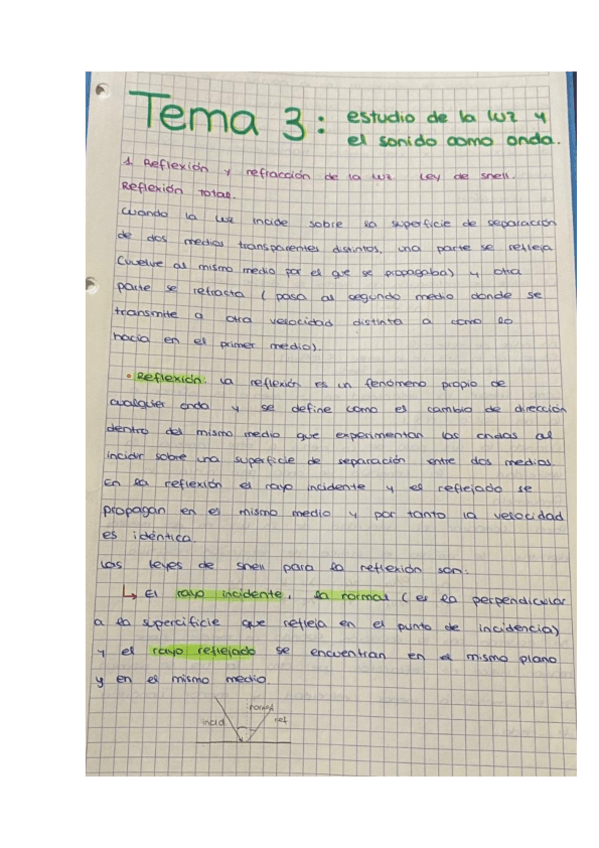 Tema 3: estudio de la luz y
el sonido como onda.
1. Reflexión y refracción de la luz Ley de snell.
Reflexión total.
Cuando la luz incide sobre la superficie de separación
de dos medios transparentes distintos, una parte se refleja
(vuelve al mismo medio por el que se propagaba) y otra
parte se refracta (pasa al segundo medio donde se
transmite a otra velocidad distinta a como lo
hacía en el primer medio).
• Reflexión: la reflexión es un fenómeno propio de
cualquier onda y se define como el cambio de dirección
dentro del mismo medio que experimentan las ondas al
incidir sobre una superficie de separación entre dos medios.
En la reflexión el rayo incidente y el reflejado se
propagan en el mismo medio y por tanto la velocidad
es idéntica.
Las leyes de snell para la reflexión son:
↳ El rayo incidente, la normal (es la perpendicular
a la supercificie que refleja en el punto de incidencia)
y el rayo reflejado se encuentran en el mismo plano
y en el mismo medio.
normal
incid ref.